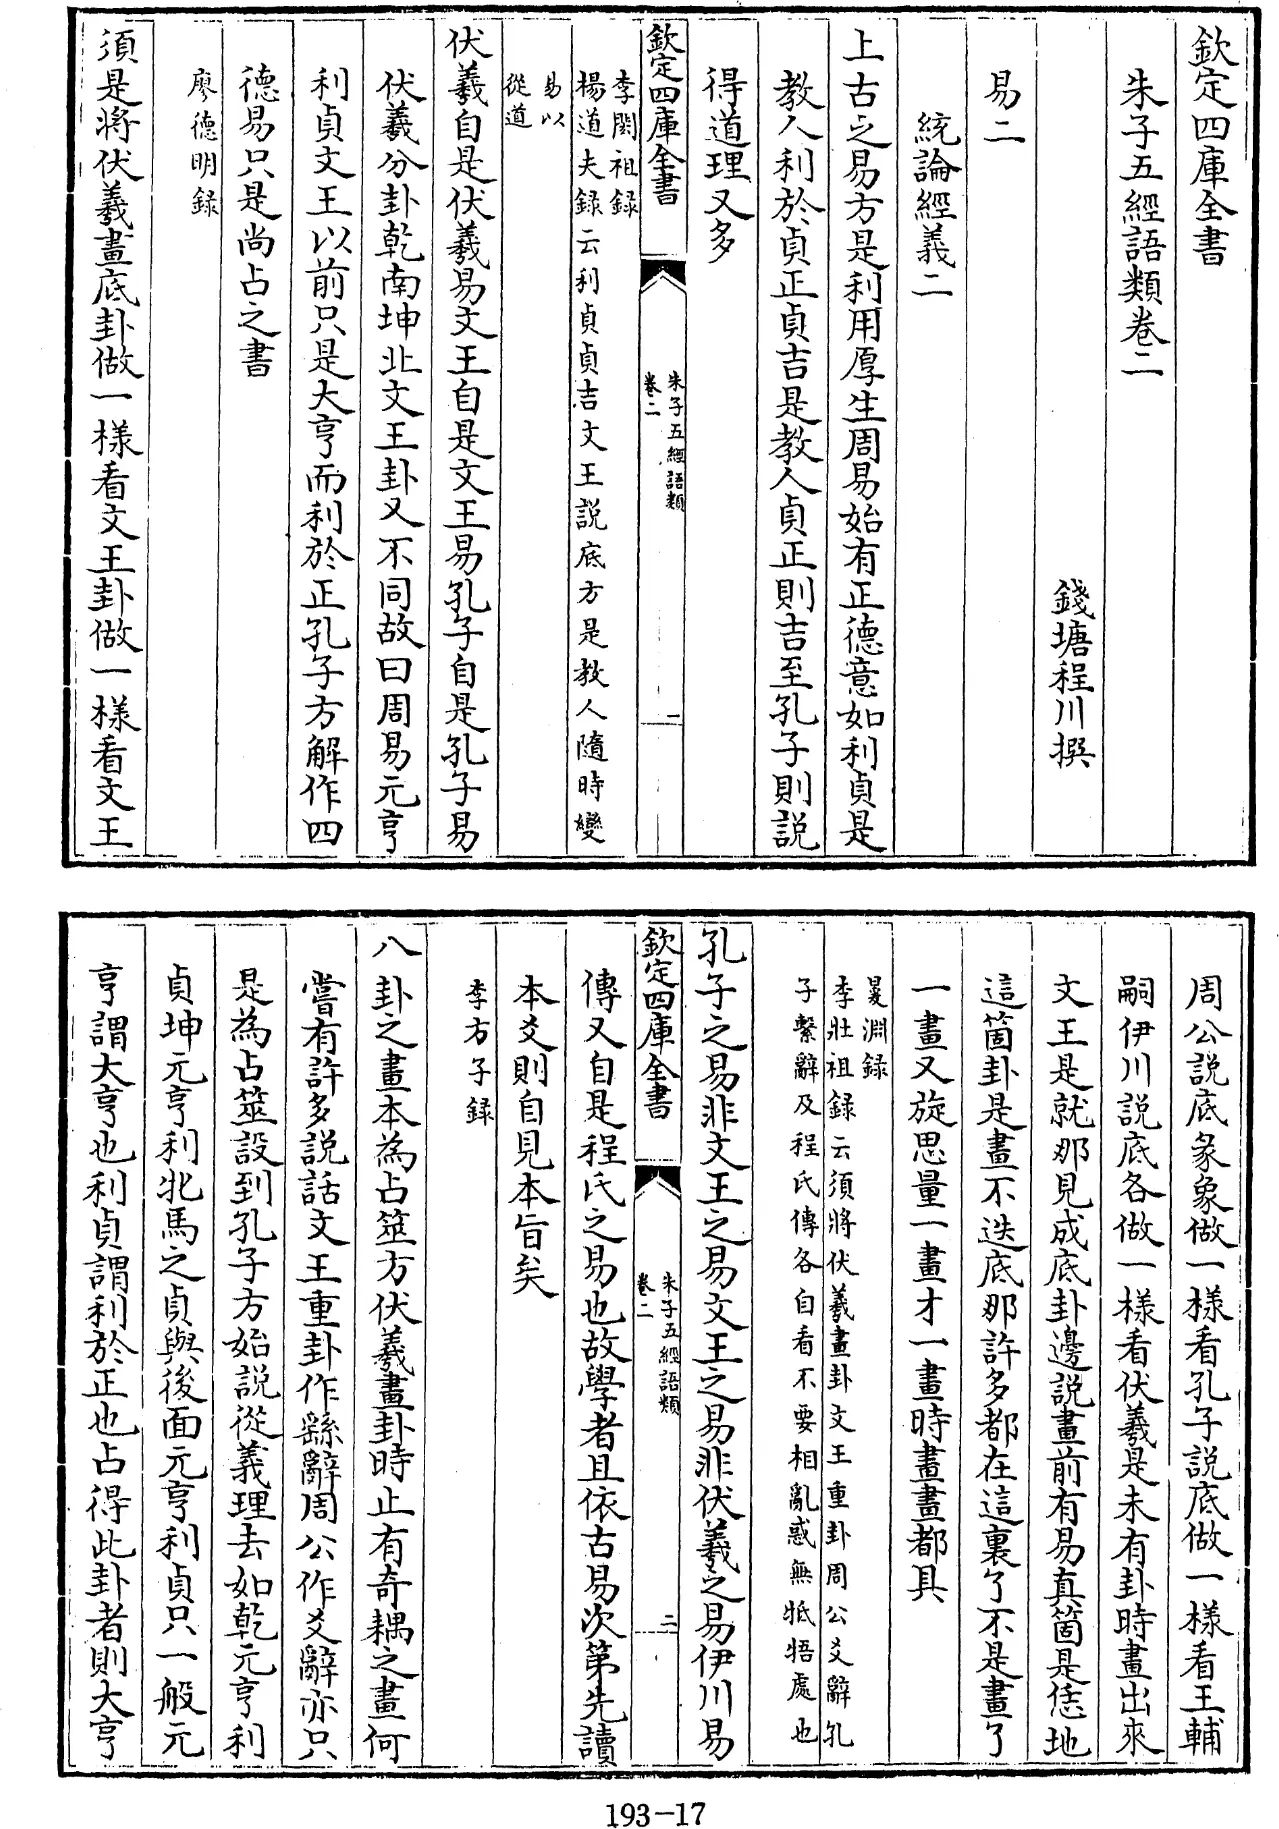 欽定四庫全書
朱子五經語類卷二
錢塘程川撰
易二
統論經義二
上古之易方是利用厚生周易始有正德意如利貞是
教人利於貞正貞吉是教人貞正則吉至孔子則説
得道理又多
李閎祖録
楊道夫録云利貞貞吉文王説底方是教人隨時變
易以
從道
欽定四庫全書
朱子五經語類
卷二
一
伏羲自是伏羲易文王自是文王易孔子自是孔子易
伏羲分卦乾南坤北文王卦又不同故曰周易元亨
利貞文王以前只是大亨而利於正孔子方解作四
德易只是尚占之書
廖德明録
須是將伏羲畫底卦做一様看文王卦做一様看文王
周公説底彖象做一様看孔子説底做一様看王輔
嗣伊川説底各做一様看伏羲是未有卦時畫出來
文王是就那見成底卦邊説畫前有易真箇是恁地
這箇卦是畫不迭底那許多都在這裏了不是畫了
一畫又旋思量一畫才一畫時畫畫都具
㬊淵録
李壯祖録云須將伏羲畫卦文王重卦周公爻辭孔
子繫辭及程氏傳各自看不要相亂惑無牴牾處也
孔子之易非文王之易文王之易非伏羲之易伊川易
欽定四庫全書
朱子五經語類
卷二
二
傳又自是程氏之易也故學者且依古易次第先讀
本爻則自見本旨矣
李方子録
八卦之畫本為占筮方伏羲畫卦時止有奇耦之畫何
嘗有許多説話文王重卦作繇辭周公作爻辭亦只
是為占筮設到孔子方始説從義理去如乾元亨利
貞坤元亨利牝馬之貞與後面元亨利貞只一般元
亨謂大亨也利貞謂利於正也占得此卦者則大亨
193-17